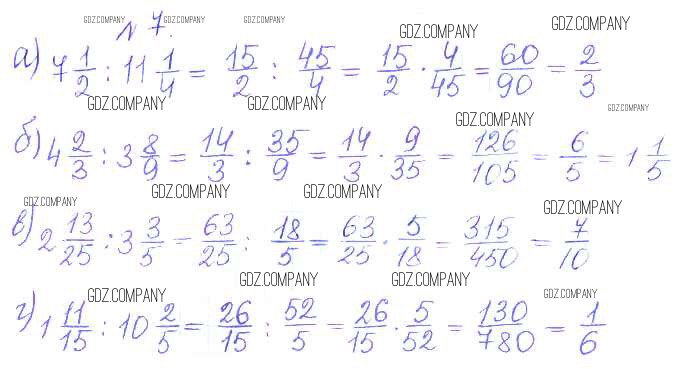 GDZ.COMPANY GDZ.COMPANY GDZ.COMPANY
№ 7. GDZ.COMPANY GDZ.COMPANY
а) 7 1/2 : 11 1/4 = 15/2 : 45/4 = 15/2 · 4/45 = 60/90 = 2/3
GDZ.COMPANY GDZ.COMPANY GDZ.COMPANY
GDZ.COMPANY
б) 4 2/3 : 3 8/9 = 14/3 : 35/9 = 14/3 · 9/35 = 126/105 = 6/5 = 1 1/5
GDZ.COMPANY GDZ.COMPANY GDZ.COMPANY
GDZ.COMPANY
в) 2 13/25 : 3 3/5 = 63/25 : 18/5 = 63/25 · 5/18 = 315/450 = 7/10
GDZ.COMPANY GDZ.COMPANY
GDZ.COMPANY GDZ.COMPANY
г) 1 11/15 : 10 2/5 = 26/15 : 52/5 = 26/15 · 5/52 = 130/780 = 1/6